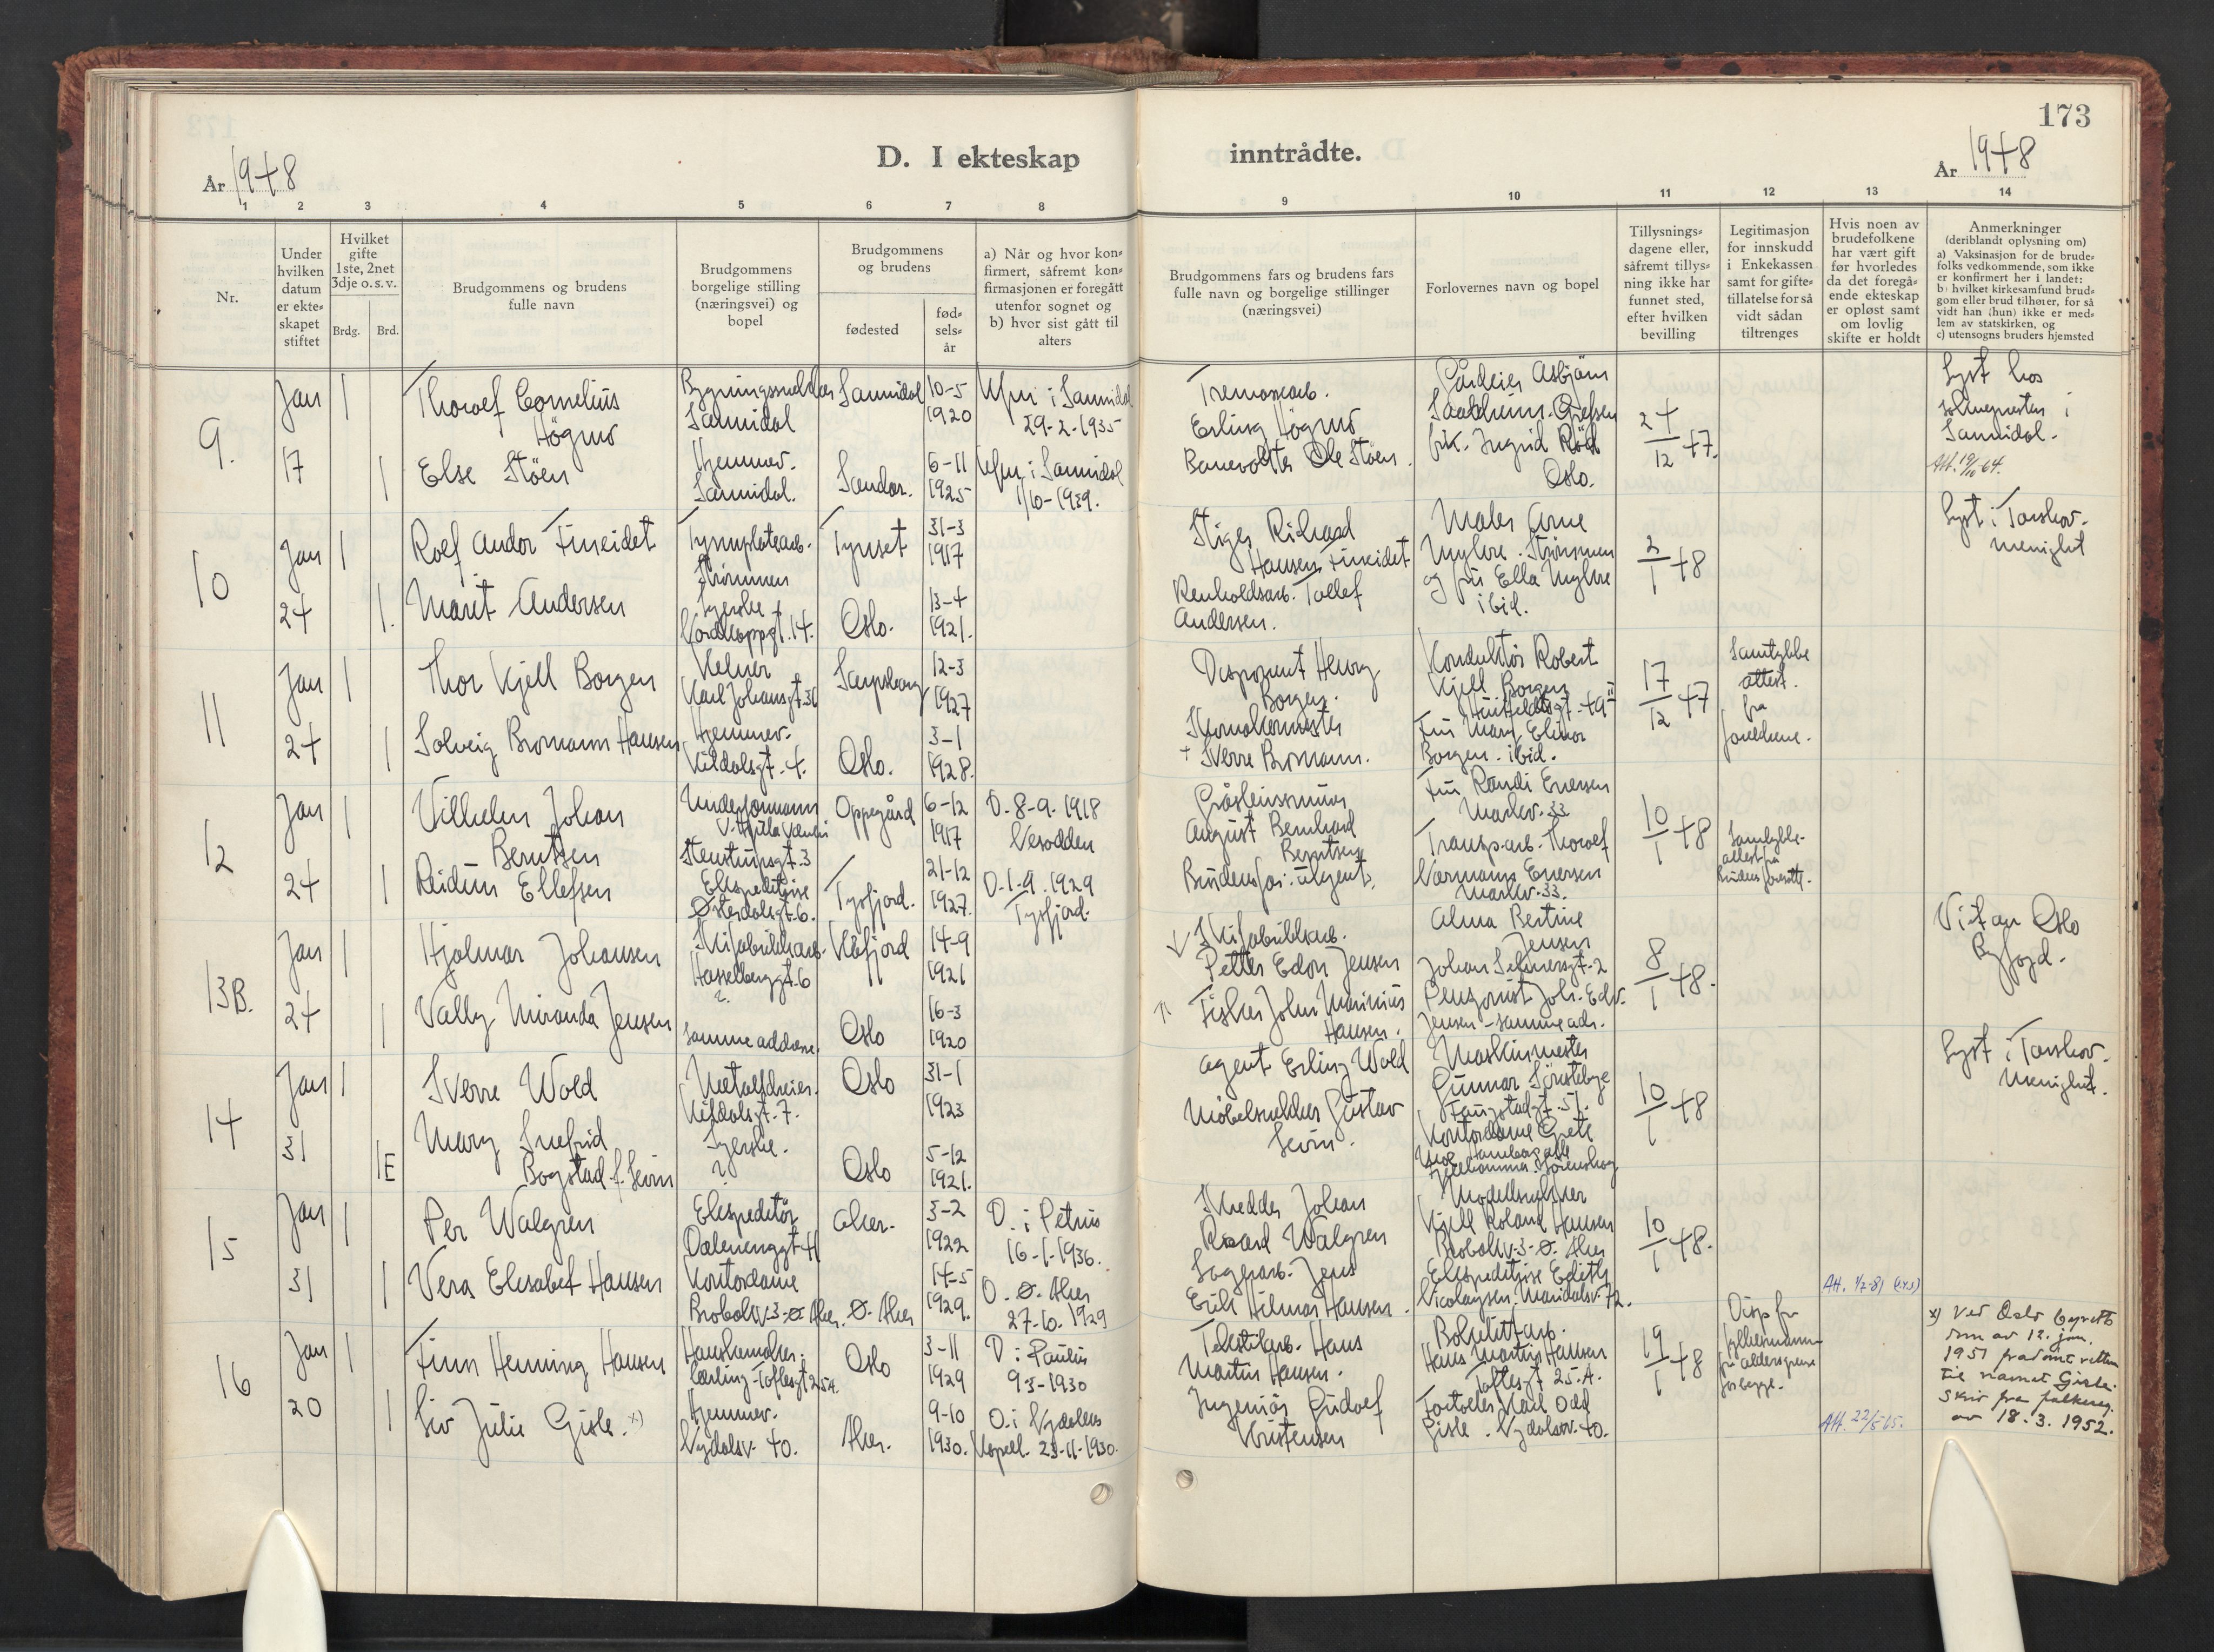 173
D. I ekteskap inntrådte.
År 1948
År 1948
1 2 3 4 5 6 7 8 9 10 11 12 13 14
Nr.
Under
hvilken
datum
er ekte-
skapet
stiftet
Hvilket
gifte
1ste, 2net
3dje o. s. v.
Brdg. Brd.
Brudgommens og brudens
fulle navn
Brudgommens
borgelige stilling
(næringsvei) og
bopel
Brudgommens
og brudens
fødested
fød-
sels-
år
a) Når og hvor kon-
firmert, såfremt kon-
firmasjonen er foregått
utenfor sognet og
b) hvor sist gått til
alters
Brudgommens fars og brudens fars
fulle navn og borgelige stillinger
(næringsvei)
Forlovernes navn og bopel
Tillysnings-
dagene eller,
såfremt tillys-
ning ikke har
funnet sted,
efter hvilken
bevilling
Legitimasjon
for innskudd
i Enkekassen
samt for gifte-
tillatelse for så
vidt sådan
tiltrenges
Hvis noen av
brudefolkene
har vært gift
før hvorledes
da det foregå-
ende ekteskap
er opløst samt
om lovlig
skifte er holdt
Anmerkninger
(deriblandt oplysning om)
a) Vaksinasjon for de brude-
folks vedkommende, som ikke
er konfirmert her i landet:
b) hvilket kirkesamfund brud-
gom eller brud tilhører, for så
vidt han (hun) ikke er med-
lem av statskirken, og
c) utensogns bruders hjemsted
9.
Jan
17
1
1
Thorolf Cornelius
Högmo
Else Stöen
Sannidal
Hjemmev.
Sannidal.
Sannidal
Sandar.
10-5
1920
6-11
1925
Kfm i Sannidal
29-2-1935
Kfm i Sannidal
1/10-1939.
Erling Högmo
Banevokter Ole Stöen.
Gårdeier Asbjörn
frk. Ingrid
Oslo.
24/12 47.
Lyst hos
soknepresten i
Sannidal.
Att. 19/10 64.
10
Jan
24
1
1.
Rolf Andor Fineidet
Marit Andersen
Strömmen
Syerske
14.
Tynset
Oslo.
31-3
1917
13-4
1921.
Stiger Rikard
Hansen Fineidet
Renholdsarb. Tollef
Andersen.
Maler Arne
Myhre. Strömmen
og fru Ella Myhre
ibid.
2/1 48
Lyst i Torshov
menighet
11
Jan
24
1
1
Thor Kjell Borgen
Solveig Bromann Hansen
Kelner
Karl Johansgt. 31
Hjemmev.
Kildalsgt. 4.
Sarpsborg
Oslo.
12-3
1927
3-1
1928.
Disponent Henry
Borgen.
Skomakermester
+ Sverre Bromann.
Konduktör Robert
Kjell Borgen
Fru Mary Elinor
Borgen. ibid.
17/12 47
Samtykke
attest.
fra
foreldrene.
12
Jan
24
1
1
Vilhelm Johan
Berntsen
Reidun Ellefsen
Underformann
Stenstrupsgt. 3
Ekspeditrise
Österdalsgt. 6.
Oppegård
Tysfjord.
6-12
1917
21-12
1927.
D. 8-9. 1918
Nesodden
D. 1-9. 1929
Tysfjord.
August Bernhard
Berntsen
Brudens far: ukjent.
Fru Randi Enersen
Markv. 33
Transp.arb. Thorolf
Normann Enersen
Markv. 33.
10/1 48
Samtykke-
attest fra
brudens foresatte.
13B.
Jan
24
1
1
Hjalmar Johansen
Vally Miranda Jensen
Skifabrikkarb.
Hasselberggt. 6
?
samme addresse.
Kåfjord
Oslo
14-9
1921
16-3
1920
Skifabrikkarb.
Petter Edon Jensen
Fisker John Marinius
Hansen.
Alma Bertine
Jensen
Johan Selmersgt. 2
Pensjonist Joh. Edv.
Jensen - samme adr.
8/1 48.
Vit av Oslo
Byfogd.
14
Jan
31
1
1E
Sverre Wold
Mary Snefrid
Bogstad f. Levin
Metalldreier.
Kildalsgt. 7.
Syerske.
?
Oslo
Oslo
31-1
1923
5-12
1921.
Agent Erling Wold
Möbelsnekker Gustav
Levin.
Maskinmester
Gunnar
Kontordame Grete
10/1 48
Lyst i Torshov.
Menighet.
15
Jan
31
1
1
Per Walgren
Vera Elisabet Hansen
Ekspeditör
Dælenenggt. 41
Kontordame
Brobekkv. 3-Ø. Aker.
Aker.
Ø. Aker
3-2
1922
14-5
1929.
D. i Petrus
16-1-1936.
D. Ø. Aker
27-10. 1929
Skredder Johan
Rikard Walgren
Lagerarb. Jens
Erik Hilmar Hansen.
Modellsnekker
Kjell Roland Hansen
Brobekkv. 3-Ø. Aker
Ekspeditrise Edith
Nicolaysen. Maridalsv. 72.
10/1 48.
Att. 1/2-81
16
Jan
20
1
1
Finn Henning Hansen
Siv Julie Gisle. x)
lærling - Toftesgt 25A.
Hjemmev.
Nydalsv. 40.
Oslo
Aker.
3-11
1929
9-10
1930.
D i Paulus
9 3-1930
D. i Nydalens
Kapell. 23-11-1930.
Tekstilarb. Hans
Martin Hansen.
Ingeniör Gudolf
Kristensen
Hans Martin Hansen
Toftesgt 25. A.
Karl Odd
Gisle. Nydalsv. 40.
19/1 48
Disp fra
fylkesmannen
fra aldersgrense
for begge.
Att. 22/5-65.
x) Ved Oslo byretts
dom av 12. jan.
1951 fradömt retten
til navnet Gisle.
Skriv fra folkereg.
av 18. 3. 1952.